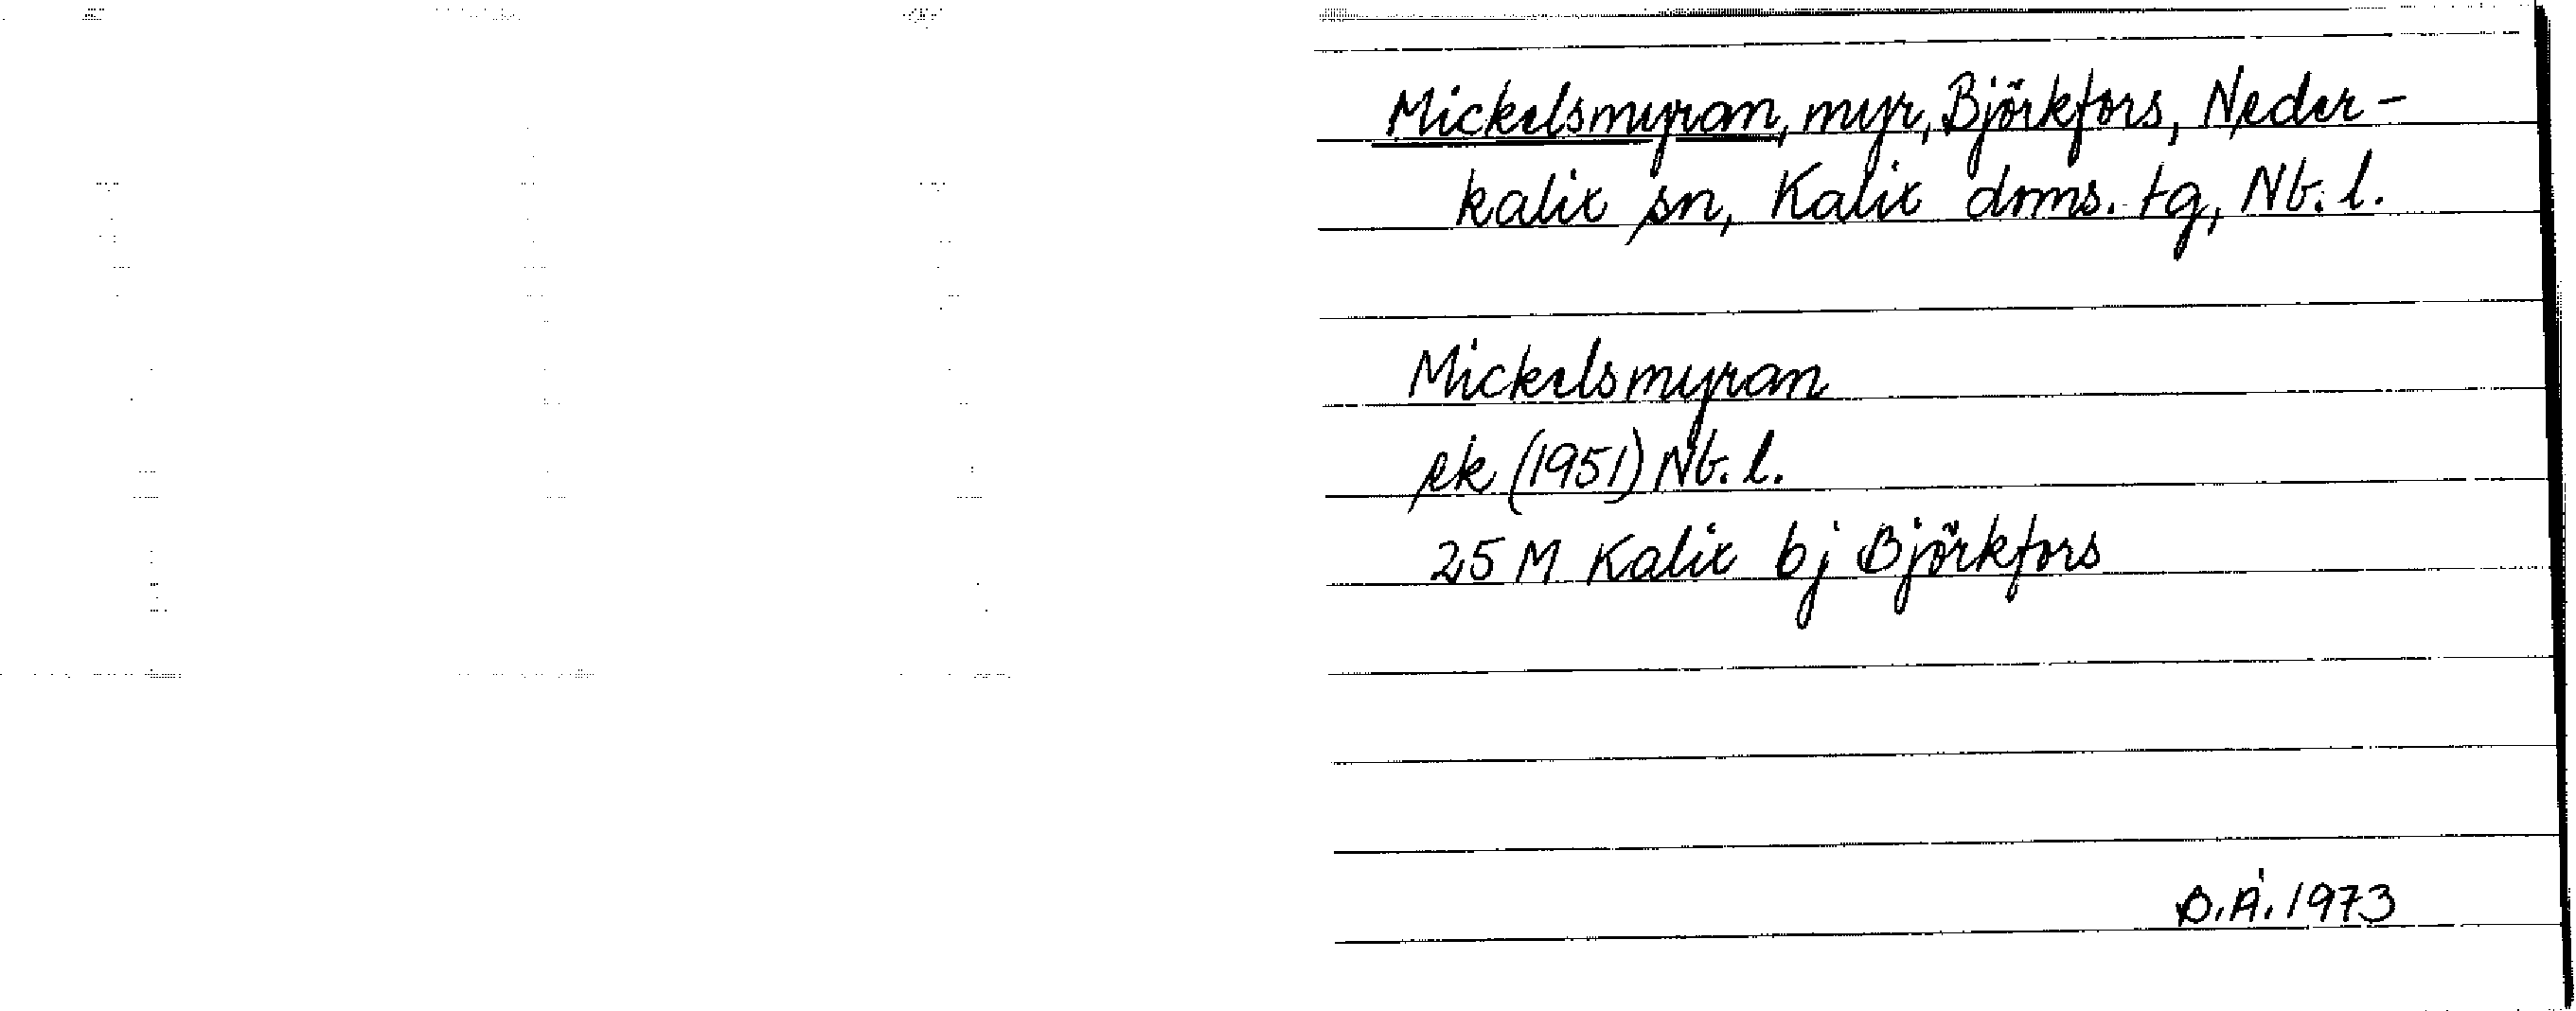 Mickelsmyran, myr, Björkfors, Neder-
kalix sn, Kalix doms. tg, Nb. l.
Mickelsmyran
ek (1951) Nb. l.
25 M Kalix bj Björkfors
B.Å. 1973